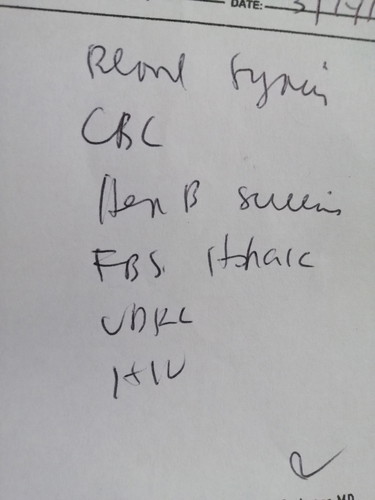 DATE:
Blood Typing
CBC
Hep B screening
FBS, HbA1c
VDRL
HIV
MD